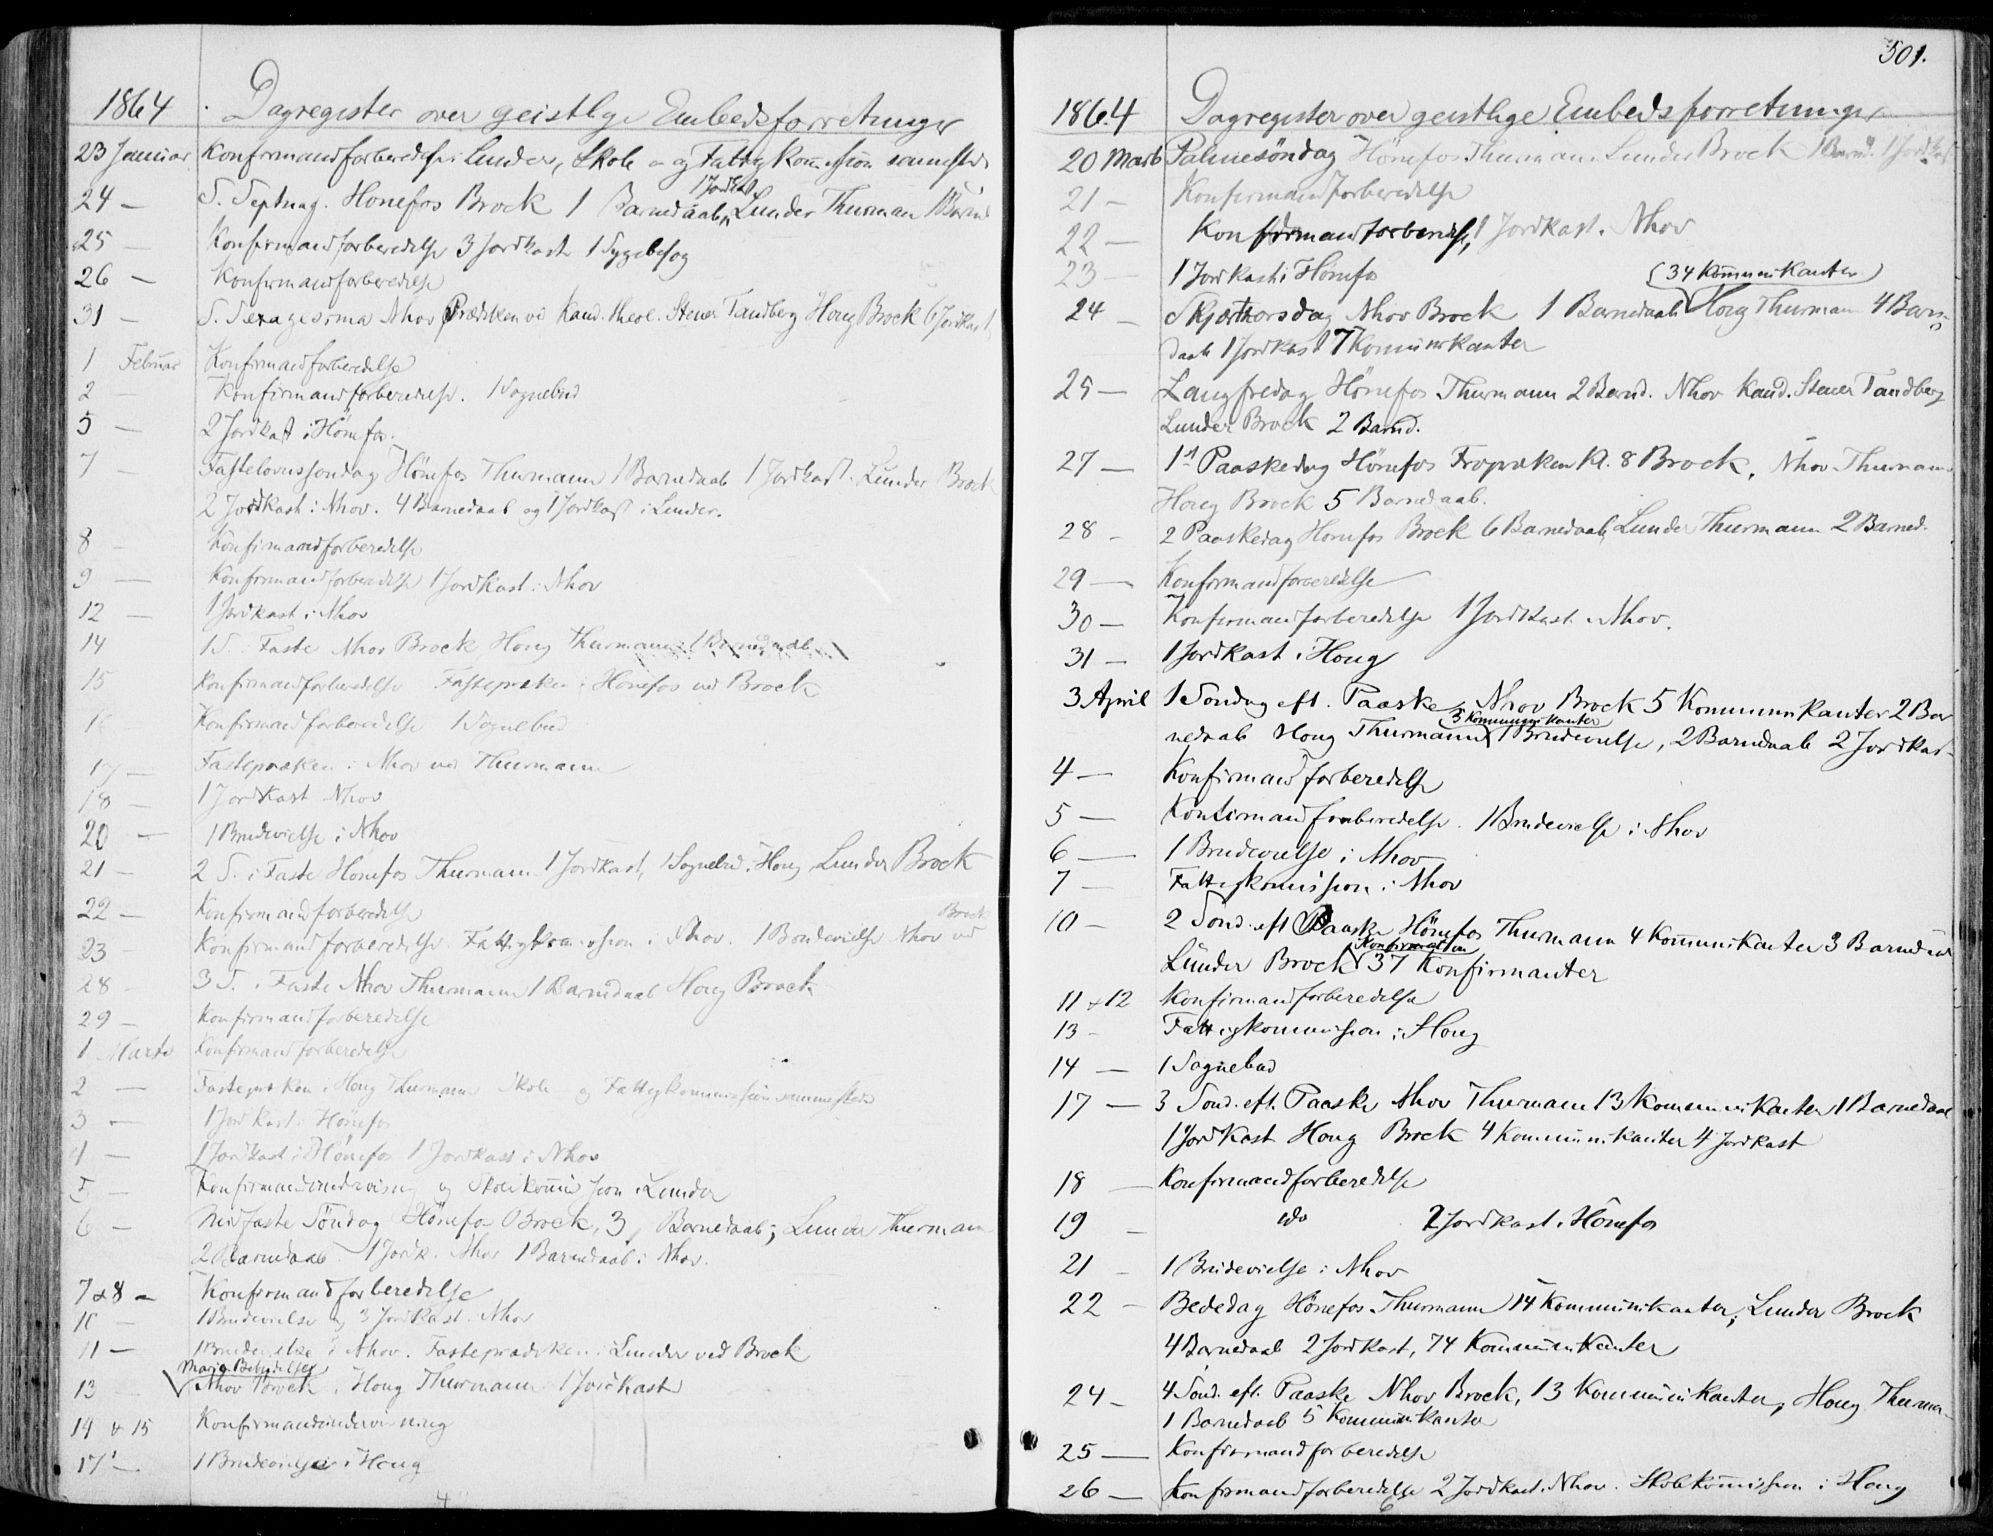 1864 . Dagregister over geistlige Embedsforretninger
23 Januar Konfirmandforberedelse i Lunder, Skole og Fattigkommission sammesteds
1 Jordkast
24 — S. Septuag. Hønefos Brock 1 Barnedaab, Lunder Thurman 1 Barned
25 — Konfirmandforberedelse 3 Jordkast 1 Sygebesøg
26 — Konfirmandforberedelse
31 — S. Sexagesima Nhov Prædiken ved Kand. theol. Stener Tandberg Houg Brock 6 Jordkast
1 Februar Konfirmandforberedelse
2 — Konfirmandforberedelse. 1 Sognebud
5 — 2 Jordkast i Hönefos.
7 — Fastelovnssöndag Hönefos Thurmann 1 Barnedaab 1 Jordkast. Lunder Brock
2 Jordkast i Nhov. 4 Barnedaab og 1 Jordkast i Lunder.
8 — Konfirmandforberedelse
9 — Konfirmandforberedelse 1 Jordkast i Nhov
12 — 1 Jordkast i Nhov
14 1 S. i Faste Nhov Brock Houg Thurmann 1 Barnedaab
15 Konfirmandforberedelse Fastepræken i Hönefos ved Brock
16 Konfirmandforberedelse 1 Sognebud
17 — Fastepræken i Nhov ved Thurmann
18 — 1 Jordkast Nhov
20 — 1 Brudevielse i Nhov
21 — 2 S. i Faste Hönefos Thurmann 1 Jordkast, 1 Sognebud i Houg, Lunder Brock
22 — Konfirmandforberedelse
23 — Konfirmandforberedelse. Fattigkommission i Nhov. 1 Brudevielse Nhov ved Brock
28 — 3 S. i Faste Nhov Thurmann 1 Barnedaab Houg Brock
29 — Konfirmandforberedelse
1 Marts Konfirmandforberedelse
2 — Fastepræken i Houg Thurmann Skole og Fattigkommission sammesteds
3 — 1 Jordkast i Hönefos
4 — 1 Jordkast i Hönefos 1 Jordkast i Nhov
5 — Konfirmandundervisning og Skolekommission i Lunder
6 — Midfaste Söndag Hönefos Brock, 3 Barnedaab; Lunder Thurmann
2 Barnedaab 1 Jordk. Nhov 1 Barnedaab i Nhov.
7 & 8 — Konfirmandforberedelse
10 — 1 Brudevielse og 3 Jordkast i Nhov
11 — 1 Brudevielse i Nhov. Fasteprædiken i Lunder ved Brock
Maria Bebudelse
13 — Nhov Brock, Houg Thurmann 1 Jordkast
14 & 15 Konfirmandundervisning
17 — 1 Brudevielse i Houg
501.
1864 Dagregister over geistlige Embedsforretninger
20 Marts Palmesöndag Hönefos Thurmann Lunder Brock 1 Barned. 1 Jordkast
21 — Konfirmandforberedelse
22 — Konfirmandforberedelse, 1 Jordkast i Nhov
23 — 1 Jordkast i Hönefos
(34 Kommunikanter)
24 — Skjærtorsdag Nhov Brock 1 Barnedaab Houg Thurmann 4 Barne
daab 1 Jordkast 7 Kommunikanter
25 — Langfredag Hönefos Thurmann 2 Barned. Nhov Kand. Stener Tandberg
Lunder Brock 2 Barned.
27 — 1st Paaskedag Hönefos Fropræken Kl. 8 Brock, Nhov Thurmann
Houg Brock 5 Barnedaab.
28 — 2 Paaskedag Hönefos Brock 6 Barnedaab, Lunder Thurmann 2 Barned.
29 — Konfirmandforberedelse
30 — Konfirmandforberedelse 1 Jordkast i Nhov.
31 — 1 Jordkast i Houg
3 April 1 Söndag eft. Paaske, Nhov Brock 5 Kommunikanter 2 Bar
3 Kommunikanter
nedaab Houg Thurmann 1 Brudevielse, 2 Barnedaab 2 Jordkast
4 — Konfirmandforberedelse
5 — Konfirmandforberedelse. 1 Brudevielse i Nhov
6 — 1 Brudevielse i Nhov
7 — Fattigkommission i Nhov
10 — 2 Sönd. eft Paaske Hönefos Thurmann 4 Kommunikanter 3 Barnedaab
Konfirmation
Lunder Brock 37 Konfirmanter
11 & 12 Konfirmandforberedelse
13 — Fattigkommission i Houg
14 — 1 Sognebud
17 — 3 Sönd. eft. Paaske Nhov Thurmann 13 Kommunikanter 1 Barnedaab
1 Jordkast Houg Brock 4 Kommunikanter 4 Jordkast
18 — Konfirmandforberedelse
19 — do 2 Jordkast i Hönefos
21 — 1 Brudevielse i Nhov
22 — Bededag Hönefos Thurmann 14 Kommunikanter, Lunder Brock
4 Barnedaab 2 Jordkast, 74 Kommunikanter
24 — 4 Sönd. eft. Paaske Nhov Brock, 13 Kommunikanter, Houg Thurmann
1 Barnedaab 5 Kommunikanter
25 — Konfirmandforberedelse
26 — Konfirmandforberedelse 2 Jordkast i Nhov. Skolekommission i Houg